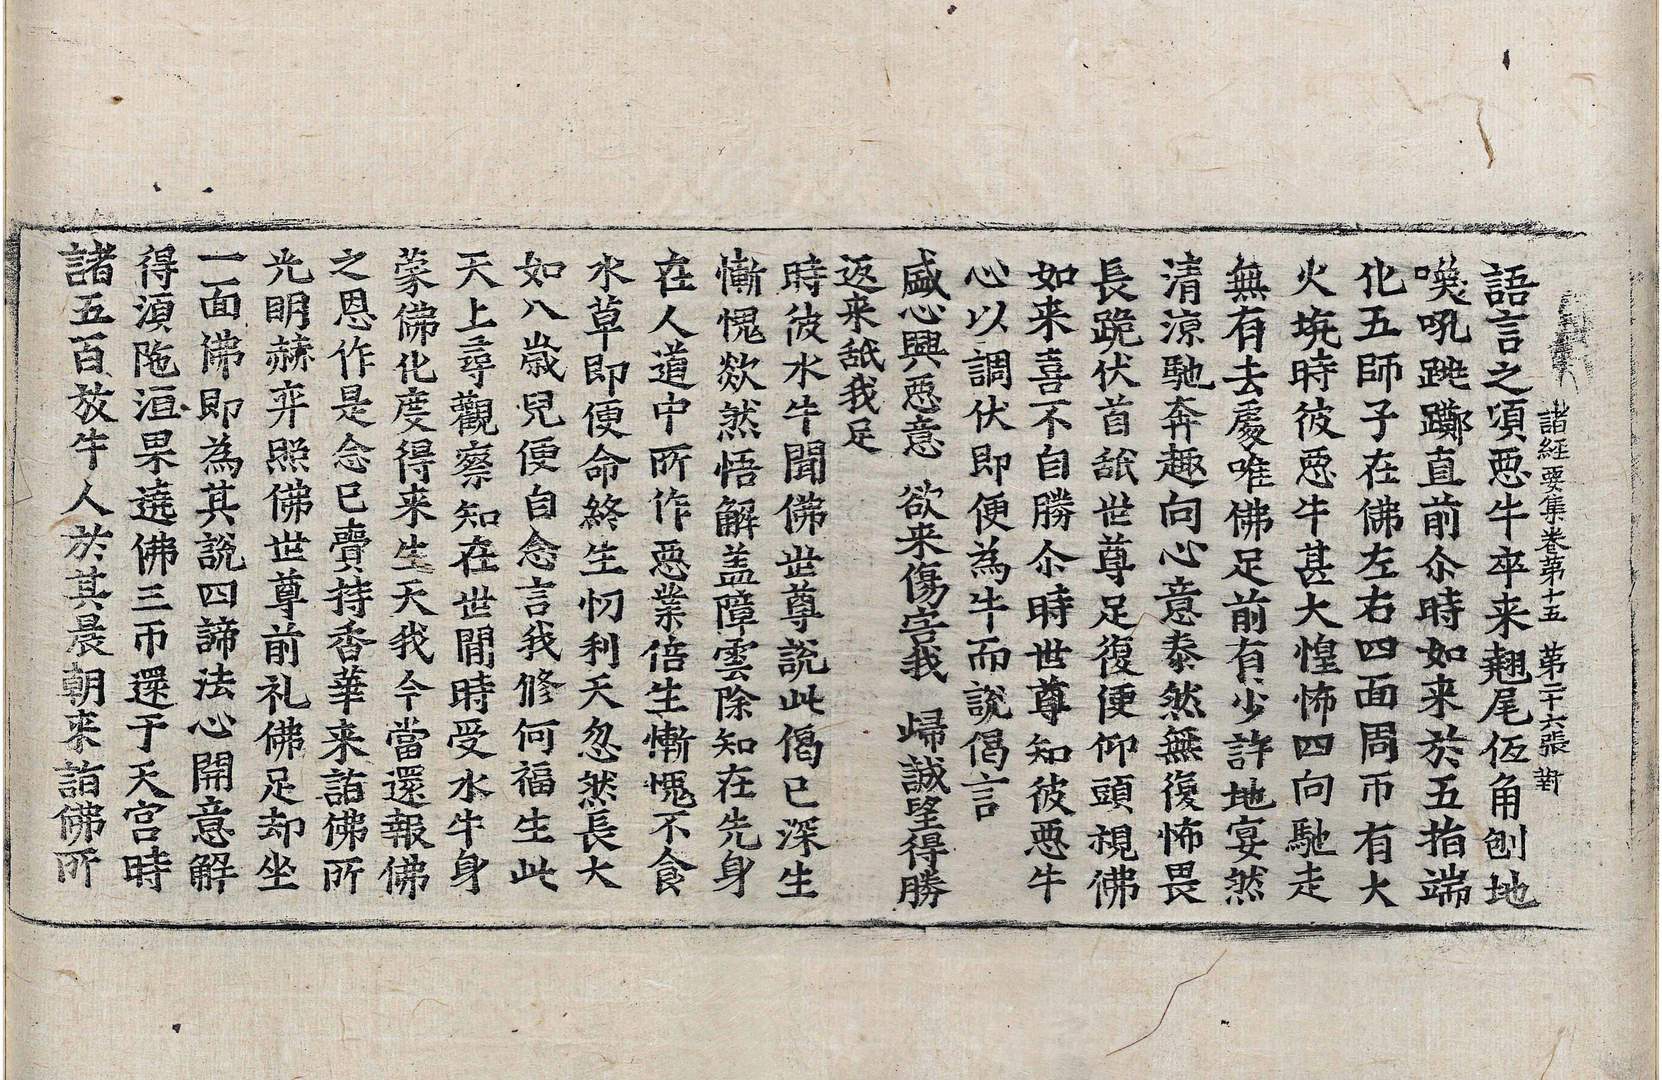 諸經要集卷第十五　第二十六張　對
語言之頃惡牛卒来翹尾仾角刨地
喚吼跳躑直前尒時如来於五指端
化五師子在佛左右四面周帀有大
火坑時彼惡牛甚大惶怖四向馳走
無有去處唯佛足前有少許地宴然
清涼馳奔趣向心意泰然無復怖畏
長跪伏首舐世尊足復便仰頭視佛
如来喜不自勝尒時世尊知彼惡牛
心以調伏即便為牛而說偈言
盛心興惡意　欲来傷害我　歸誠望得勝
返来舐我足
時彼水牛聞佛世尊說此偈已深生
慚愧欻然悟解盖障雲除知在先身
在人道中所作惡業倍生慚愧不食
水草即便命終生忉利天忽然長大
如八歲兒便自念言我修何福生此
天上尋觀察知在世間時受水牛身
蒙佛化度得来生天我今當還報佛
之恩作是念已賷持香華来詣佛所
光明赫弈照佛世尊前礼佛足却坐
一面佛即為其說四諦法心開意解
得湏陁洹果遶佛三帀還于天宮時
諸五百放牛人於其晨朝来詣佛所